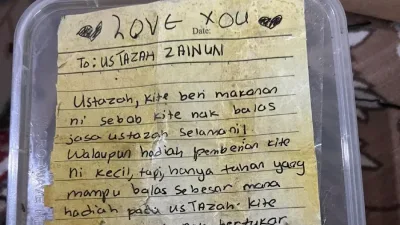 LOVE YOU
Date:
To: USTAZAH ZAINUN
Ustazah, kite beri makanan
ni sebab kite nak balas
jasa ustazah selamani!
Walaupun hadiah pemberian kite
ni kecil, tapi, hanya tuhan yang
mampu balas sebesar mana
hadiah pada usTAzah. kite
bertukar.